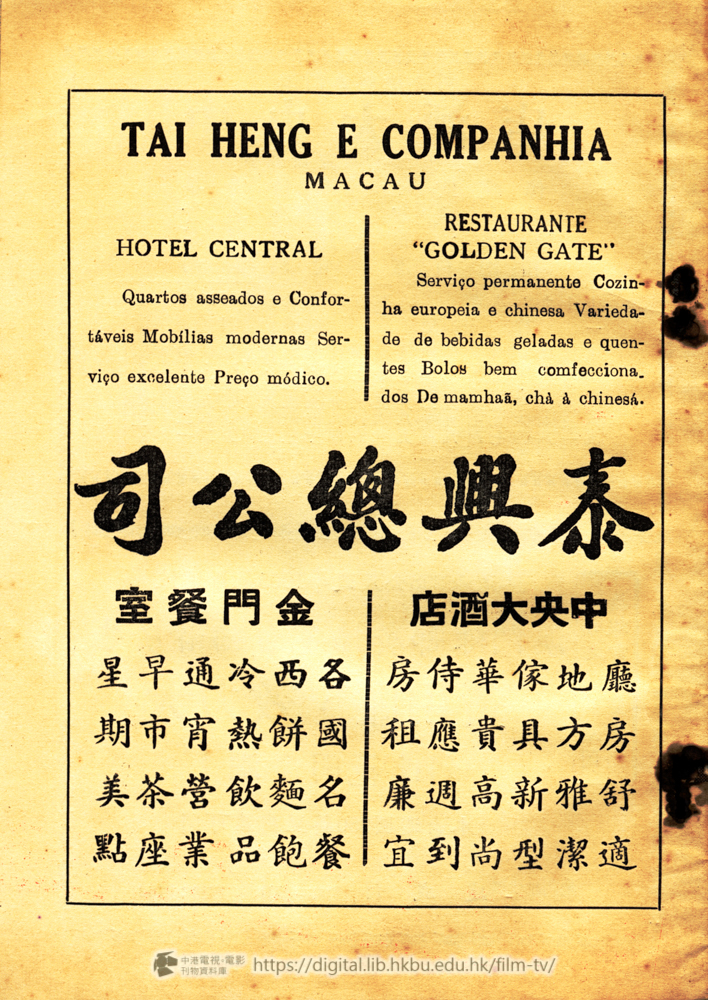 TAI HENG E COMPANHIA
MACAU
HOTEL CENTRAL
Quartos asseados e Confor-
táveis Mobílias modernas Ser-
viço excelente Preço módico.
RESTAURANTE
“GOLDEN GATE”
Serviço permanente Cozin-
ha europeia e chinesa Varieda-
de de bebidas geladas e quen-
tes Bolos bem comfecciona-
dos De mamhaã, chà à chinesá.
泰興總公司
中央大酒店
廳房舒適
地方雅潔
傢具新型
華貴高尚
侍應週到
房租廉宜
金門餐室
各國名餐
西餅麵飽
冷熱飲品
通宵營業
早市茶座
星期美點
中港電視·電影
刊物資料庫
https://digital.lib.hkbu.edu.hk/film-tv/